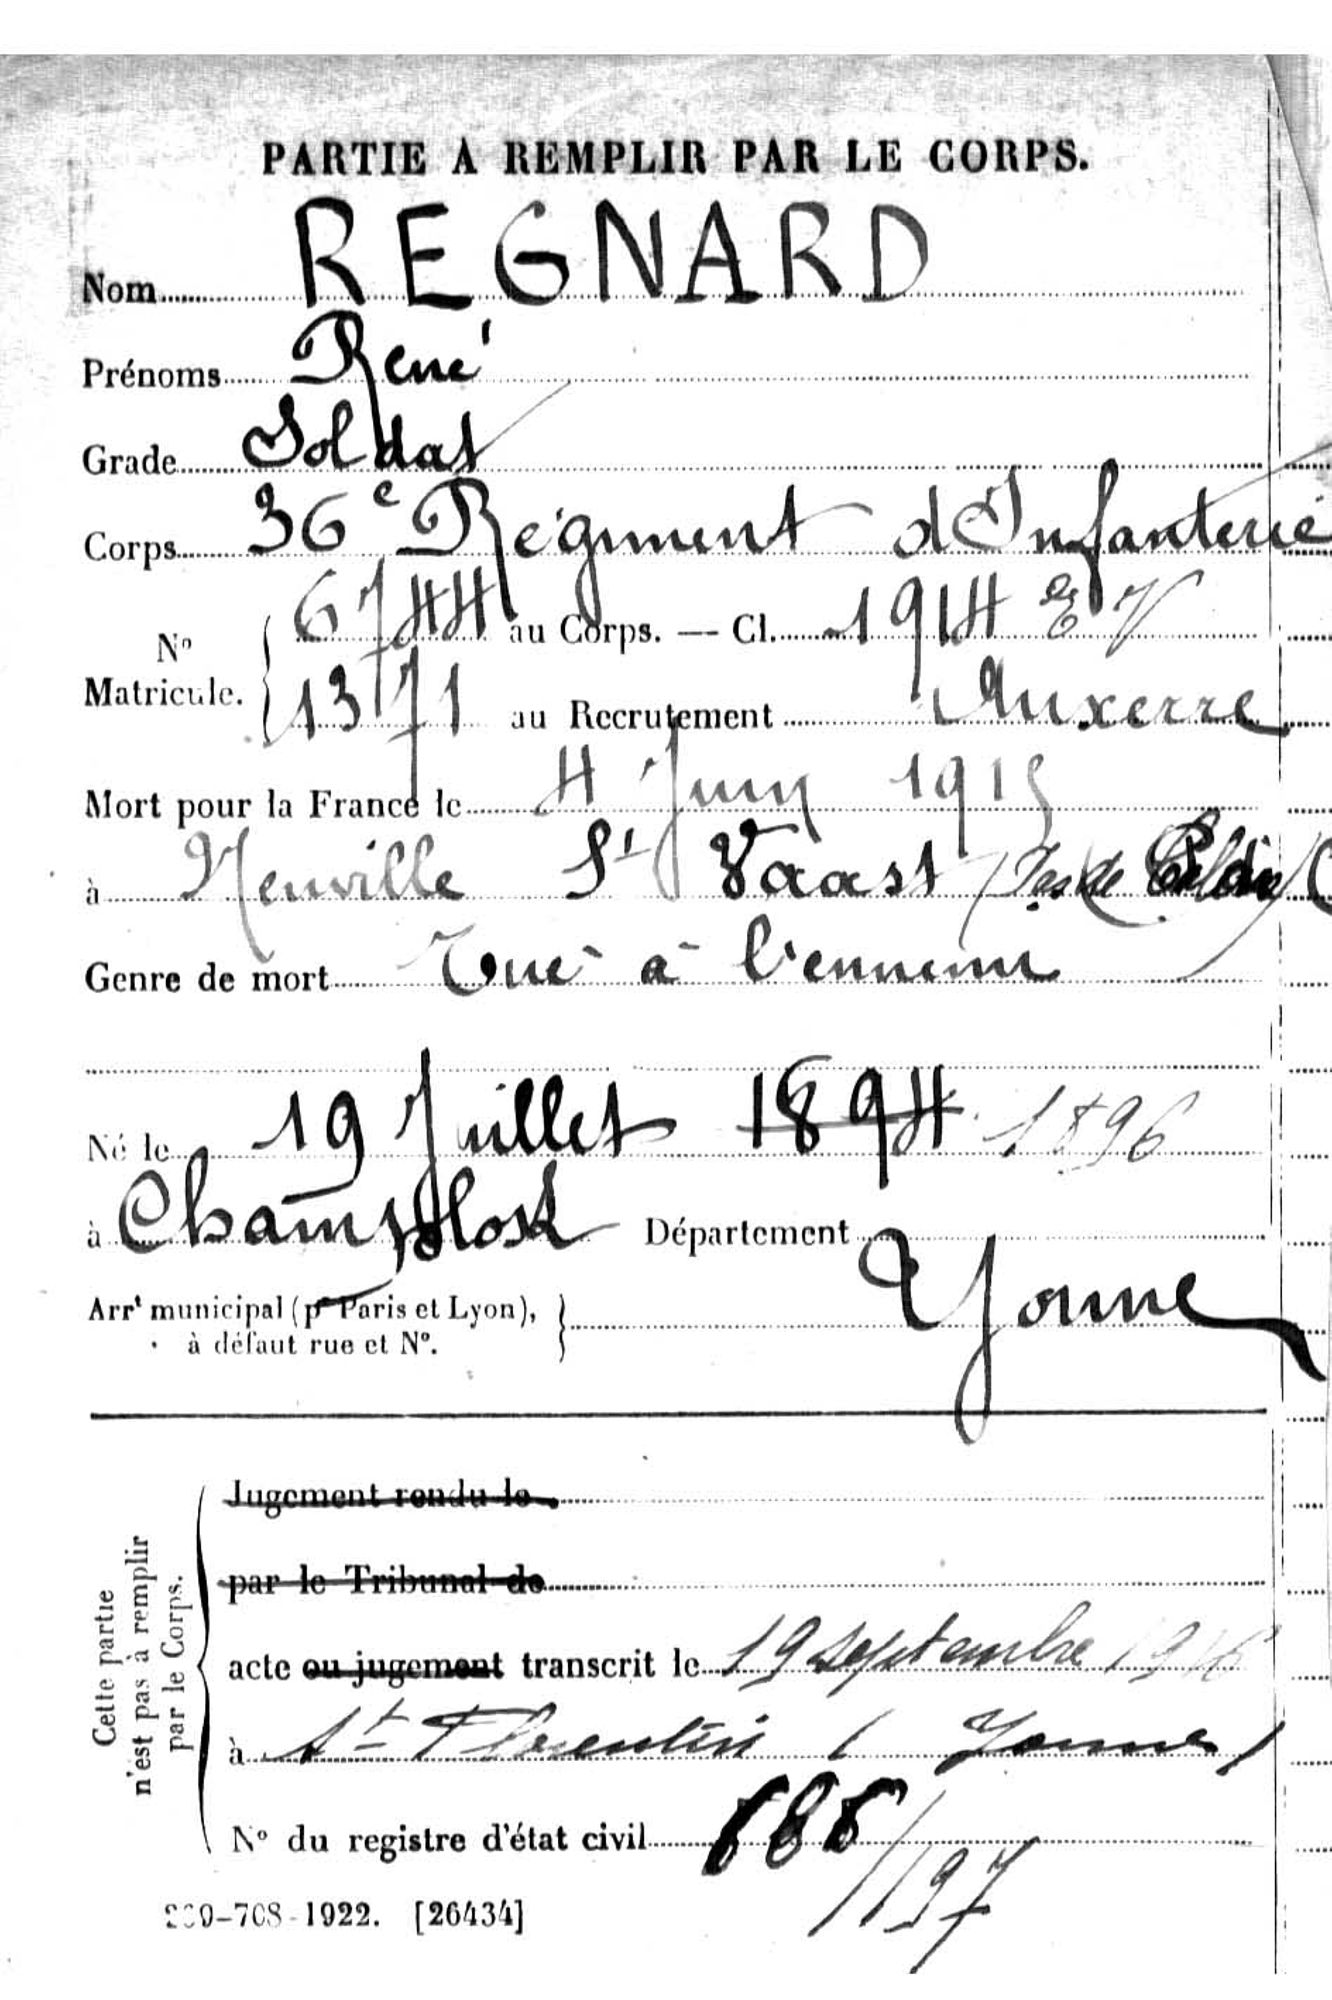 PARTIE À REMPLIR PAR LE CORPS.
Nom REGNARD
Prénoms René
Grade Soldat
Corps 36e Régiment d'Infanterie
No Matricule. 6744 au Corps. — Cl. 1914 EV
1371 au Recrutement Auxerre
Mort pour la France le 4 Juin 1915
à Neuville St Vaast (Pas de Calais)
Genre de mort Tué à l'ennemi
Né le 19 Juillet 1894 1896
à Champlost Département Yonne
Arrt municipal (pr Paris et Lyon),
à défaut rue et No.
Cette partie
n'est pas à remplir
par le Corps.
Jugement rendu le
par le Tribunal de
acte ou jugement transcrit le 19 septembre 1916
à St Florentin (Yonne)
No du registre d'état civil
/197
708-1922. [26434]